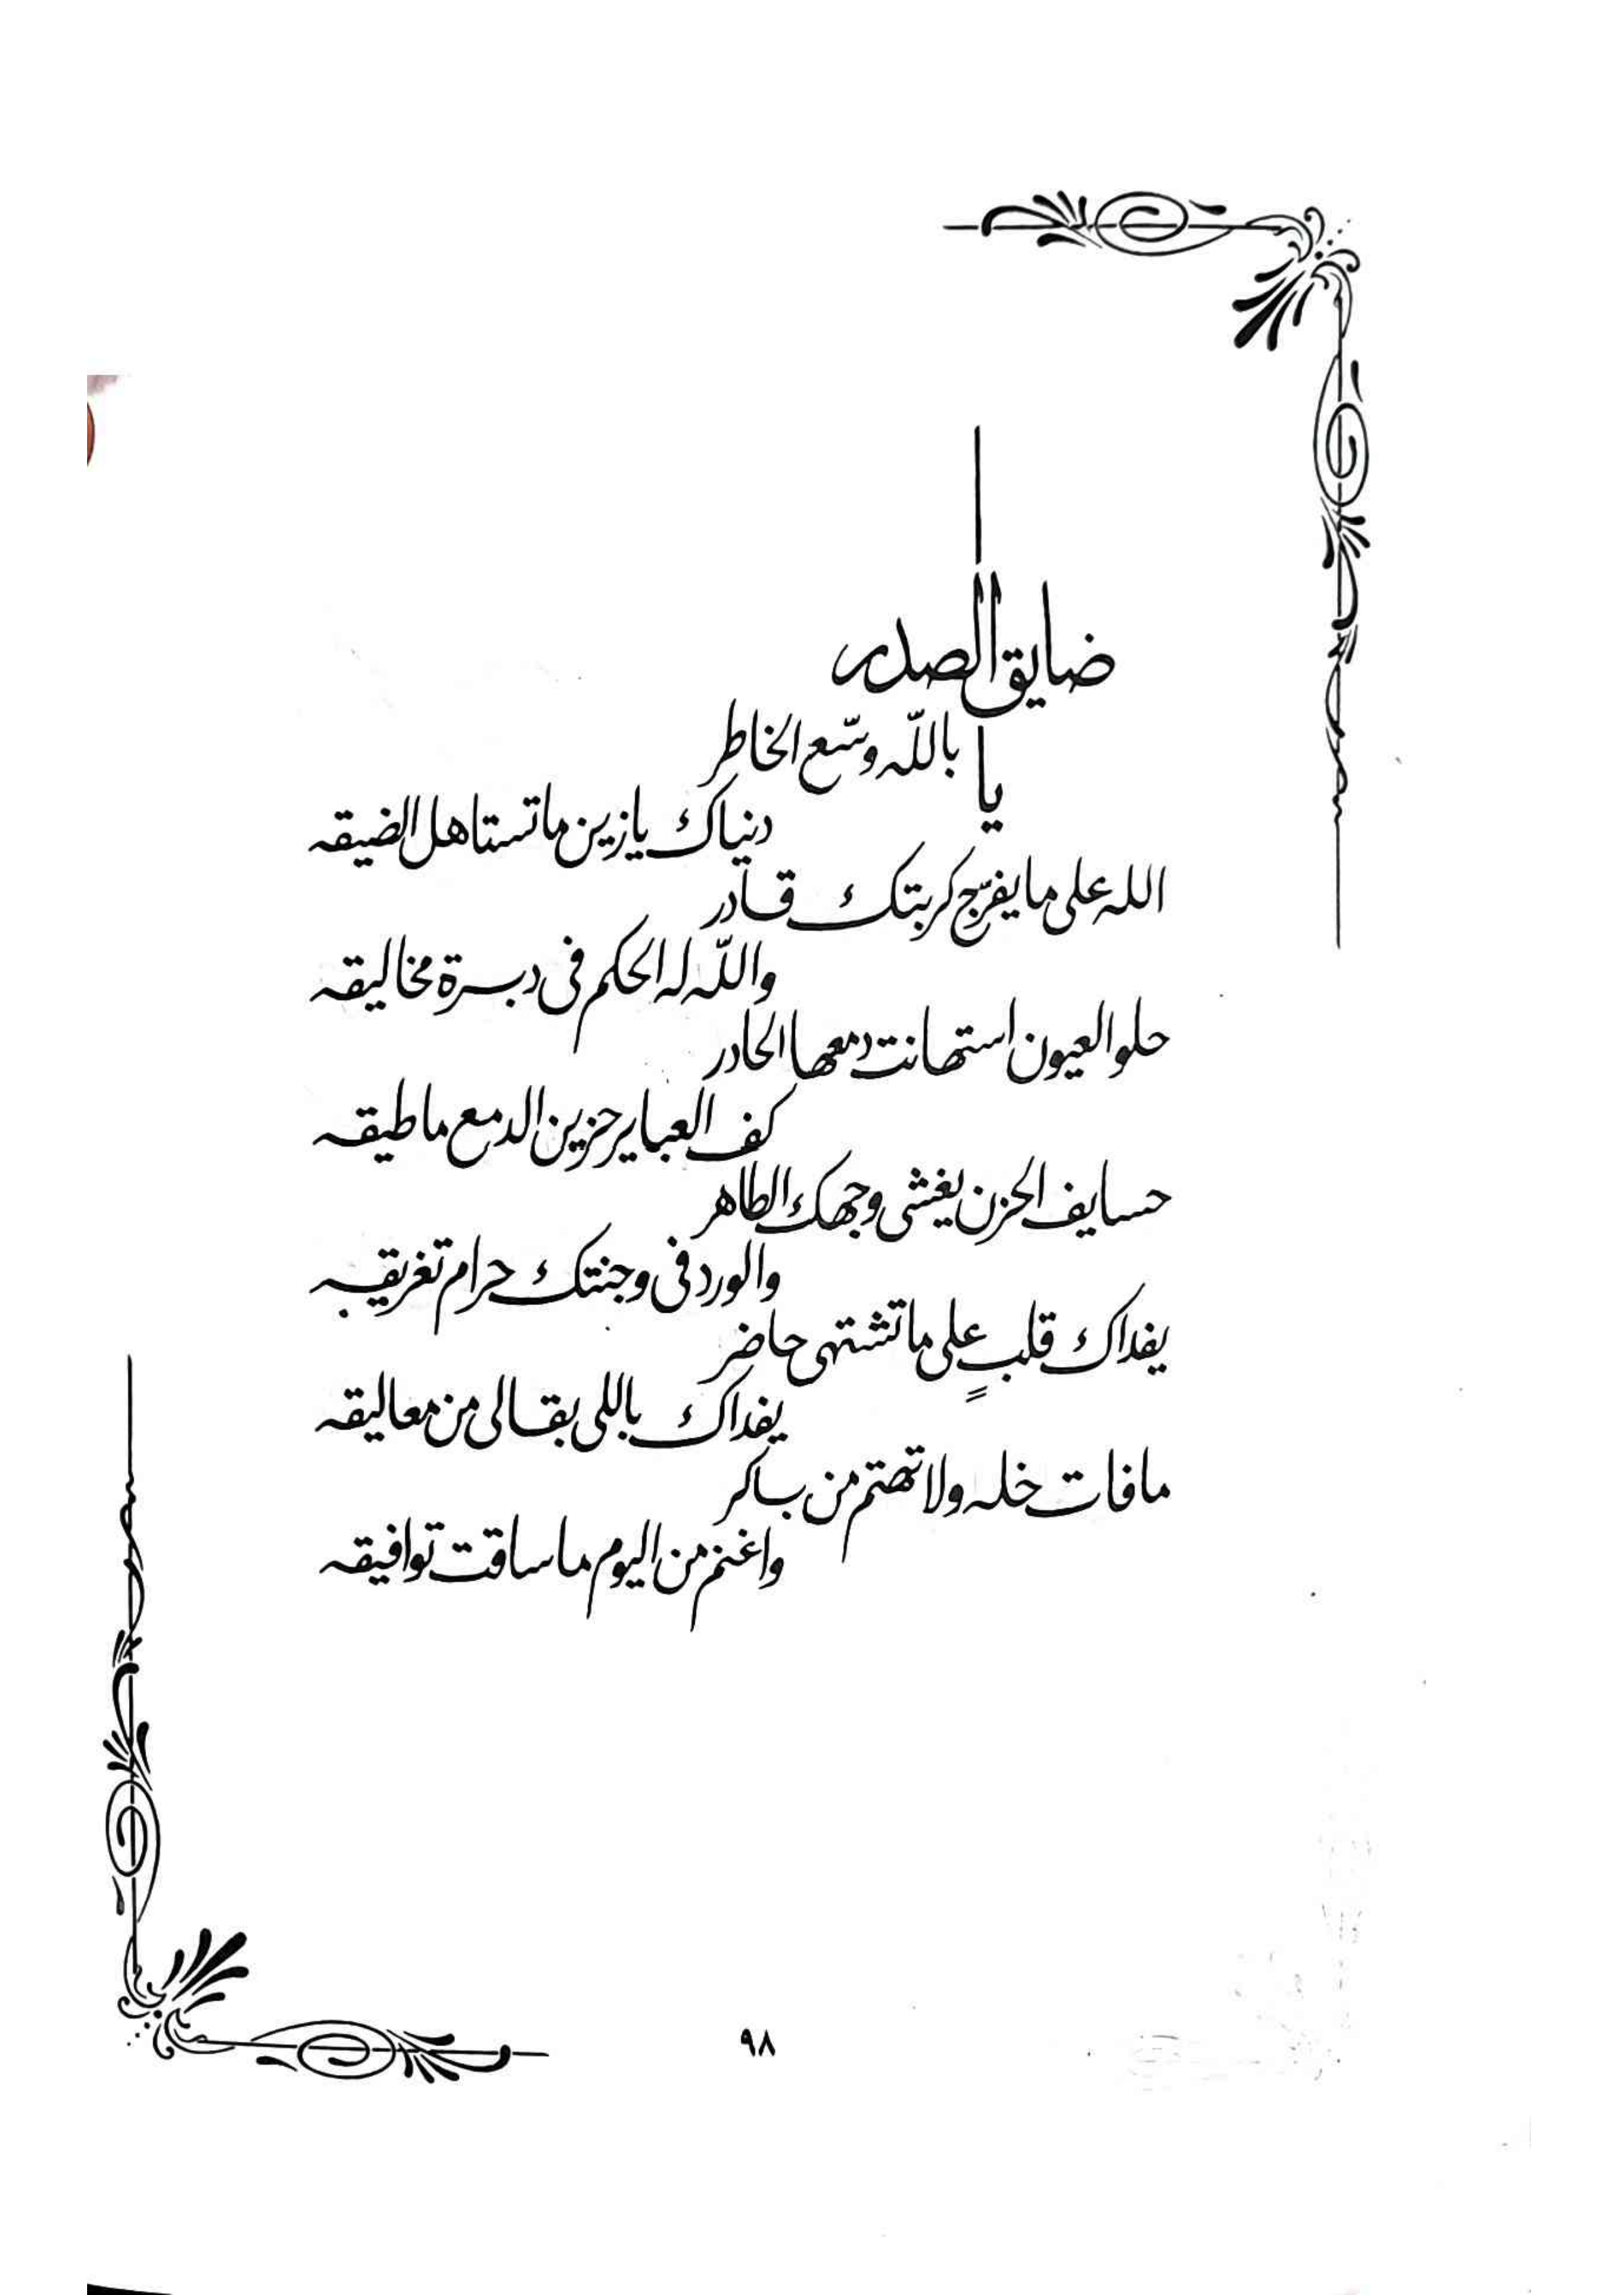 يا ضايق الصدر
بالله وسّع الخاطر
دنياك يا زين ما تستاهل الضيقه
الله على ما يفرّج كربتك قادر
والله له الحكم في دبرة مخاليقه
حلو العيون استهانت دمعها الحادر
كف العباير حزين الدمع ما طيقه
حسايف الحزن يغشى وجهك الطاهر
والورد في وجنتك حرام تغريقبه
يفداك قلبٍ على ما تشتهي حاضر
يفداك باللي بقالي من معاليقه
ما فات خله ولا تهتم من باكر
واغنم من اليوم ما ساقت توافيقه
٩٨